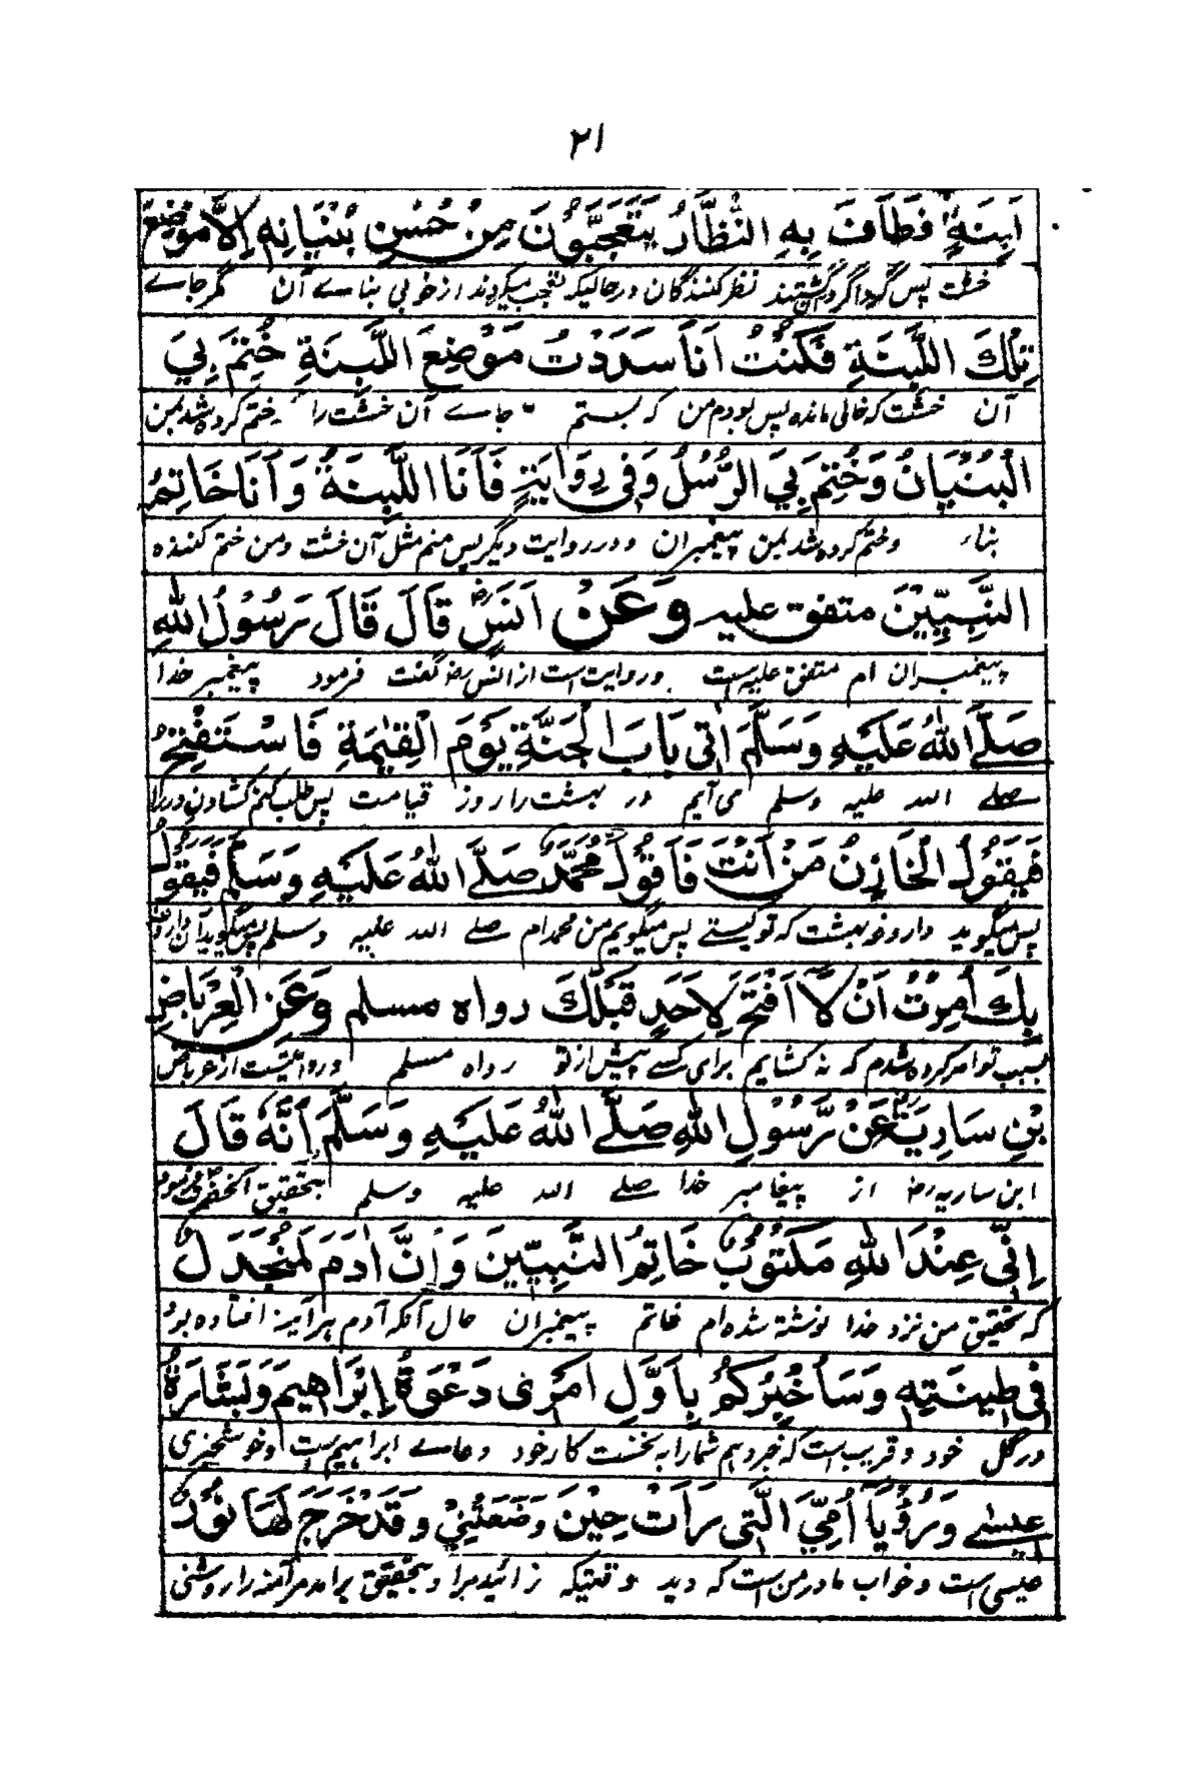 ۲۱
لَبِنَةٍ فَطَافَ بِهِ النُّظَّارُ يَتَعَجَّبُوْنَ مِنْ حُسْنِ بُنْيَانِهِ اِلَّا مَوْضِعَ
خشت پس گرداگرد گشتند نظر کنندگان در حالیکه تعجب میکردند از خوبی بناے آن مگر جاے
تِلْكَ اللَّبِنَةِ فَكُنْتُ اَنَا سَدَدْتُ مَوْضِعَ اللَّبِنَةِ خُتِمَ بِيَ
آن خشت که خالی مانده پس بودم من که بستم جاے آن خشت را ختم کرده شد بمن
الْبُنْيَانُ وَخُتِمَ بِيَ الرُّسُلُ وَفِي رِوَايَةٍ فَاَنَا اللَّبِنَةُ وَاَنَا خَاتِمُ
بناء وختم کرده شد بمن پیغمبران ودر روایت دیگر پس منم مثل آن خشت ومن ختم کننده
النَّبِيِّيْنَ متفق عليه وَعَنْ اَنَسٍ قَالَ قَالَ رَسُوْلُ اللهِ
پیغمبران ام متفق علیه است وروایت است از انس رض گفت فرمود پیغمبر خدا
صَلَّى اللهُ عَلَيْهِ وَسَلَّمَ اٰتِي بَابَ الْجَنَّةِ يَوْمَ الْقِيٰمَةِ فَاَسْتَفْتِحُ
صلے الله علیه وسلم می آیم در بهشت را روز قیامت پس طلب کنم کشادن در را
فَيَقُوْلُ الْخَازِنُ مَنْ اَنْتَ فَاَقُوْلُ مُحَمَّدٌ صَلَّى اللهُ عَلَيْهِ وَسَلَّمَ فَيَقُوْلُ
پس میگوید داروغه بهشت که تو کیستے پس میگویم من محمد ام صلے الله علیه وسلم پس میگوید آن
بِكَ اُمِرْتُ اَنْ لَا اَفْتَحَ لِاَحَدٍ قَبْلَكَ رواه مسلم وَعَنِ الْعِرْبَاضِ
بسبب تو امر کرده شدم که نه کشایم برای کسے پیش از تو رواه مسلم وروایت است از عرباض
بْنِ سَارِيَةَ رض عَنْ رَّسُوْلِ اللهِ صَلَّى اللهُ عَلَيْهِ وَسَلَّمَ اَنَّهُ قَالَ
ابن ساریه رض از پیغامبر خدا صلے الله علیه وسلم بتحقیق آنحضرت فرمود
اِنِّي عِنْدَ اللهِ مَكْتُوْبٌ خَاتِمُ النَّبِيِّيْنَ وَاِنَّ اٰدَمَ لَمُنْجَدِلٌ
که بتحقیق من نزد خدا نوشته شده ام خاتم پیغمبران حال آنکه آدم هر آینه افتاده بود
فِي طِيْنَتِهِ وَسَاُخْبِرُكُمْ بِاَوَّلِ اَمْرِي دَعْوَةُ اِبْرَاهِيْمَ وَبَشَارَةُ
در گل خود و قریب است که خبر دهم شما را به نخست کار خود دعاے ابراهیم است وخوشخبری
عِيْسٰى وَرُؤْيَا اُمِّيَ الَّتِي رَاَتْ حِيْنَ وَضَعَتْنِيْ وَقَدْ خَرَجَ لَهَا نُوْرٌ
عیسی است وخواب مادر من است که دید وقتیکه زائید مرا وبتحقیق برامد مر آمنه را روشنی